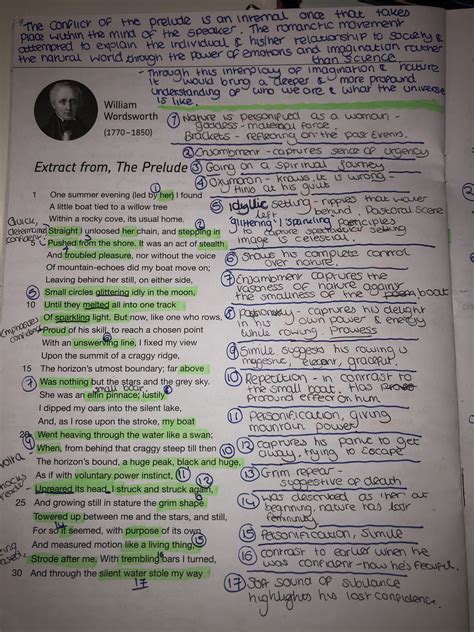 "The conflict of the prelude is an internal one that takes
place within the mind of the speaker. The romanctic movement
attempted to explain the individual & his/her relationship to society &
the natural world through the power of emotions and imagination rather
than science
- Through this interplay of imagination & nature
it would bring a deeper & more profound
understanding of who we are & what the universe
is like.
William
Wordsworth
(1770–1850)
① Nature is personified as a woman -
goddess - maternal force
Brackets - reflecting on the past events.
② Enjambment - captures sense of urgency
③ Going on a spiritual journey
④ Oxymoron - knows it is wrong -
thing at his guilt
⑤ Idyllic setting - ripples that water
left behind Pastoral scene
glittering / sparkling
to capture spectacular setting
image is celestial.
⑥ Shows his complete control
over nature
⑦ Enjambment captures the
vastness of nature against
the smallness of the boat
⑧ - captures his delight
in his own power & energy
while rowing. Prowess
⑨ Simile suggests his rowing is
majestic, elegant, graceful.
⑩ Repetition - in contrast to
the small boat. Has
profound effect on him
⑪ Personification, giving
mountain power
⑫ captures his panic to get
away, trying to escape
⑬ Grim repear -
suggestive of death
⑭ was described as 'her' at
beginning, nature has lost
femininity
⑮ Personification, simile
⑯ contrast to earlier when he
was confident - now he's fearful.
⑰ Soft sound of sibulance
highlights his lost confidence.
Extract from, The Prelude
1 One summer evening (led by her) I found
A little boat tied to a willow tree
Within a rocky cove, its usual home.
Straight I unloosed her chain, and stepping in
5 Pushed from the shore. It was an act of stealth
And troubled pleasure, nor without the voice
Of mountain-echoes did my boat move on;
Leaving behind her still, on either side,
Small circles glittering idly in the moon,
10 Until they melted all into one track
Of sparkling light. But now, like one who rows,
Proud of his skill, to reach a chosen point
With an unswerving line, I fixed my view
Upon the summit of a craggy ridge,
15 The horizon's utmost boundary; far above
Was nothing but the stars and the grey sky.
small boat.
She was an elfin pinnace; lustily
I dipped my oars into the silent lake,
And, as I rose upon the stroke, my boat
20 Went heaving through the water like a swan;
When, from behind that craggy steep till then
The horizon's bound, a huge peak, black and huge,
As if with voluntary power instinct,
Upreared its head. I struck and struck again,
25 And growing still in stature the grim shape
Towered up between me and the stars, and still,
For so it seemed, with purpose of its own
And measured motion like a living thing,
Strode after me. With trembling oars I turned,
30 And through the silent water stole my way
17
Quick,
determined
confident
Emphasizes